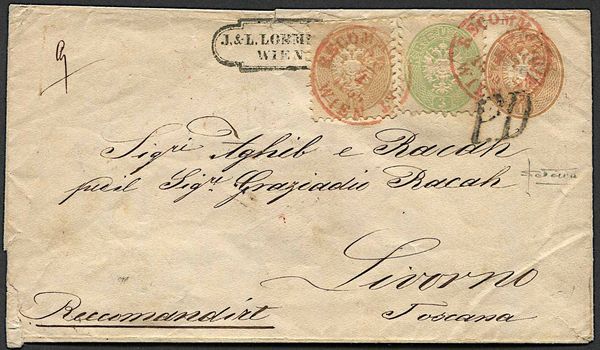 J. & L. LOEM
WIEN
RECOMM
WIEN
RECOMM
3
P.D
Sigri Aghib e Racah
p\u00a0il Sigr Graziadio Racah
Livorno
Toscana
Reccomandirt